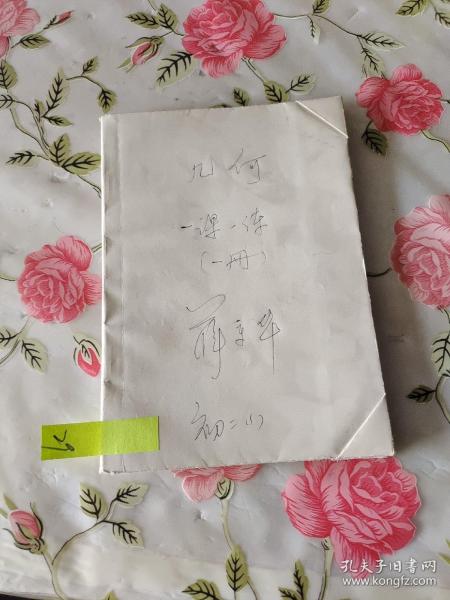 几何
一课一练
(一册)
蒋
初二(1)
孔夫子旧书网
www.kongfz.com